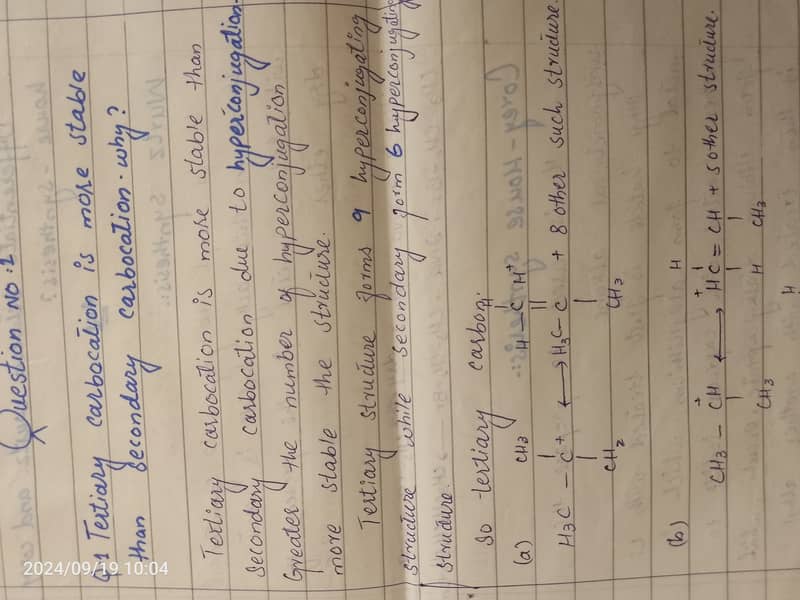 Question NO:1
Q1 Tertiary carbocation is more stable
than secondary carbocation. why?
Tertiary carbocation is more stable than
secondary carbocation due to hyperconjugation.
Greater the number of hyperconjugation
more stable the structure.
Tertiary structure forms 9 hyperconjugating
structure while secondary form 6 hyperconjugating
structure.
So tertiary carbon:
(a) CH3 H - C H+
H3C - C+ ⟷ H3C - C + 8 other such structure.
CH2 CH3
(b) H
CH3 - CH+ ⟷ +HC = CH + 5 other structure.
CH3 H CH3
H
2024/09/19 10:04